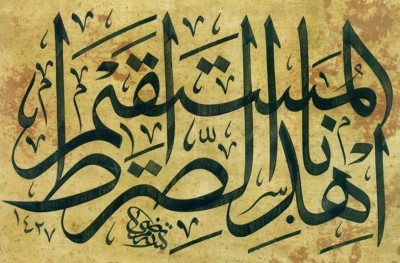 اهدنا الصرط المستقيم
١٤٢٧